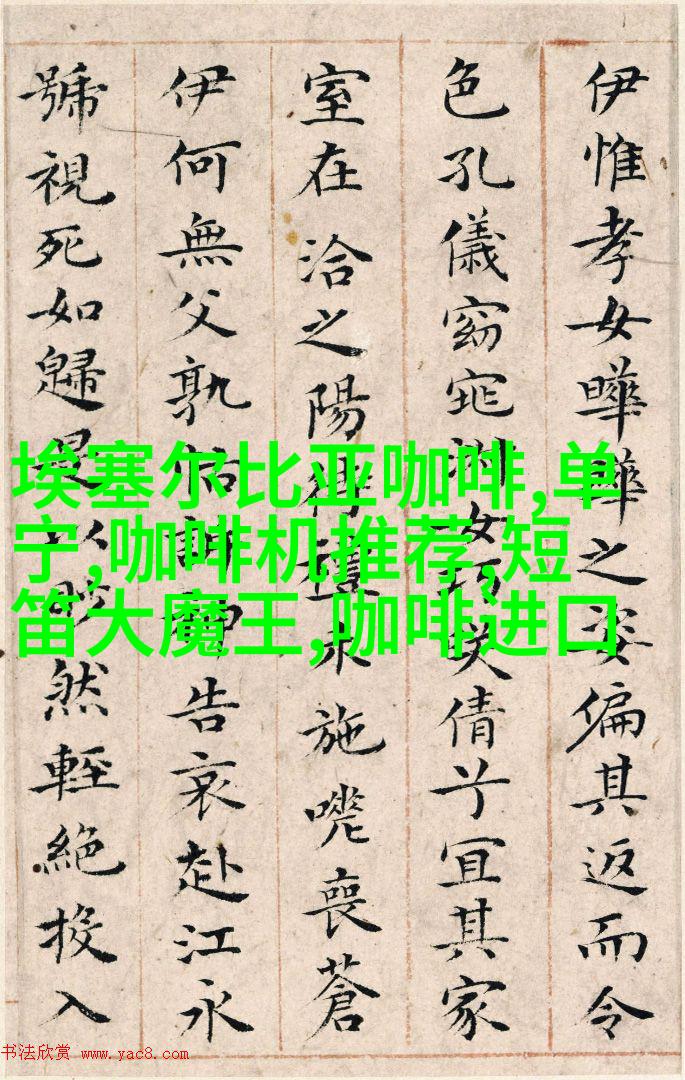 伊惟孝女曄曄之姿偏其返而令
色孔儀窈窕淑女巧笑倩兮宜其家
室在洽之陽待禮未施嗟喪蒼
伊何無父孰怙訴神告哀赴江永
號視死如歸是以眇然輕絕投入
埃塞尔比亚咖啡,单
宁,咖啡机推荐,短
笛大魔王,咖啡,进口
书法欣赏 www.yac8.com